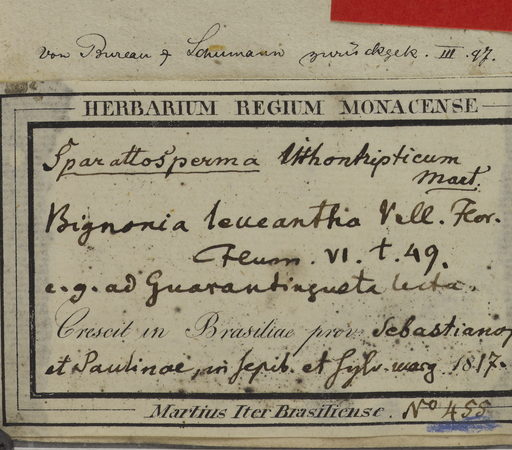 von Bureau & Schumann zurückgek. III. 97.
HERBARIUM REGIUM MONACENSE
Sparattosperma lithontripticum
Mart.
Bignonia leucantha Vell. Flor.
Flum. VI. t. 49.
e.g. ad Guarantingueta lecta.
Crescit in Brasiliae prov. Sebastianop
et Paulinae, in sepib. et sylv. marg 1817.
Martius Iter Brasiliense. No 455